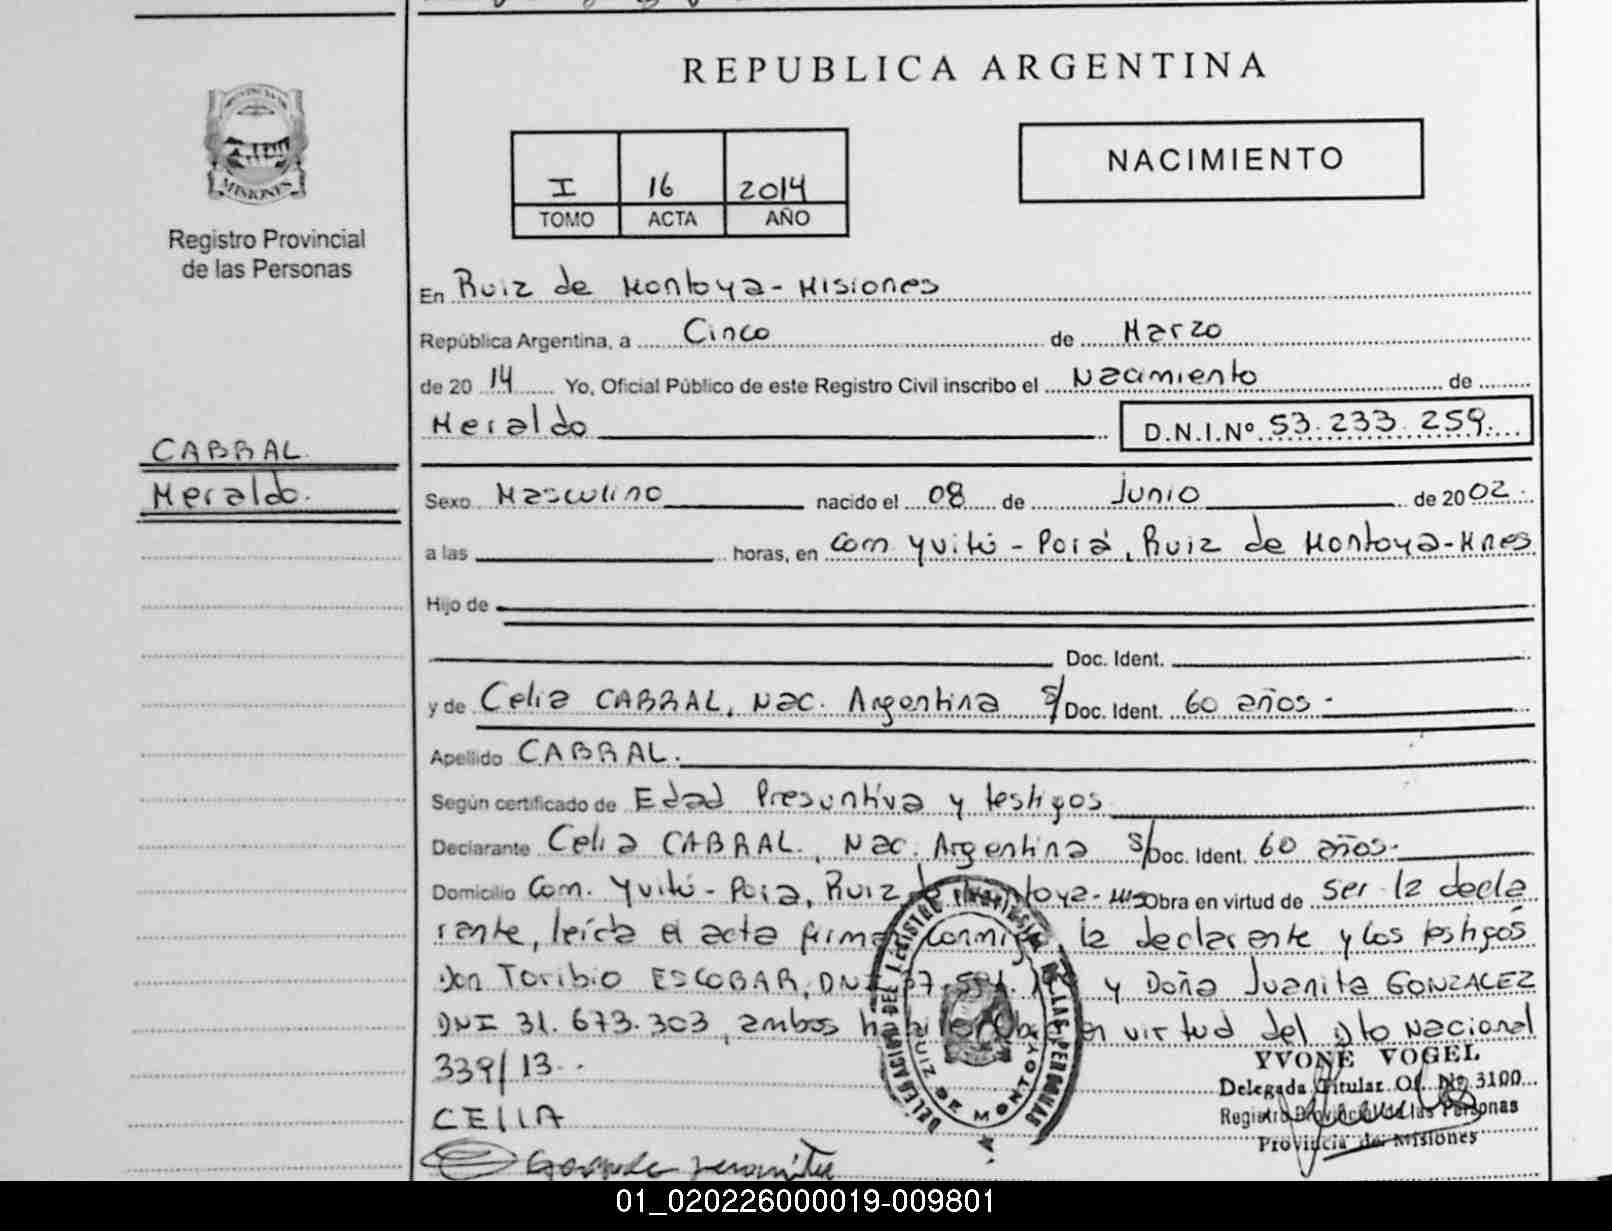 REPUBLICA ARGENTINA
PROVINCIA DE
MISIONES
Registro Provincial
de las Personas
I 16 2014
TOMO ACTA AÑO
NACIMIENTO
En Ruiz de Montoya - Misiones
República Argentina, a Cinco de Marzo
de 2014 Yo, Oficial Público de este Registro Civil inscribo el Nacimiento de
Meraldo D.N.I.Nº 53.233.259
CABRAL.
Meraldo.
Sexo Masculino nacido el 08 de Junio de 2002.
a las horas, en Com Yvitú - Porá, Ruiz de Montoya - Mnes
Hijo de
Doc. Ident.
y de Celia CABRAL, Nac. Argentina s/ Doc. Ident. 60 años -
Apellido CABRAL.
Según certificado de Edad Presuntiva y testigos
Declarante Celia CABRAL., Nac. Argentina s/ Doc. Ident. 60 años -
Domicilio Com. Yvitú - Porá, Ruiz de Montoya - Mis Obra en virtud de Ser la decla
rante, leída el acta firma conmigo, la declarante y los testigos
Don Toribio ESCOBAR, DNI y Doña Juanita GONZALEZ
DNI 31.673.303, ambos en virtud del Dto Nacional
339/13.-
CELIA
DELEGACION DEL REGISTRO PROVINCIAL DE LAS PERSONAS
RUIZ DE MONTOYA
YVONE VOGEL
Delegada Titular Of. Nº 3100
Registro Provincial de las Personas
Provincia de Misiones
01_020226000019-009801